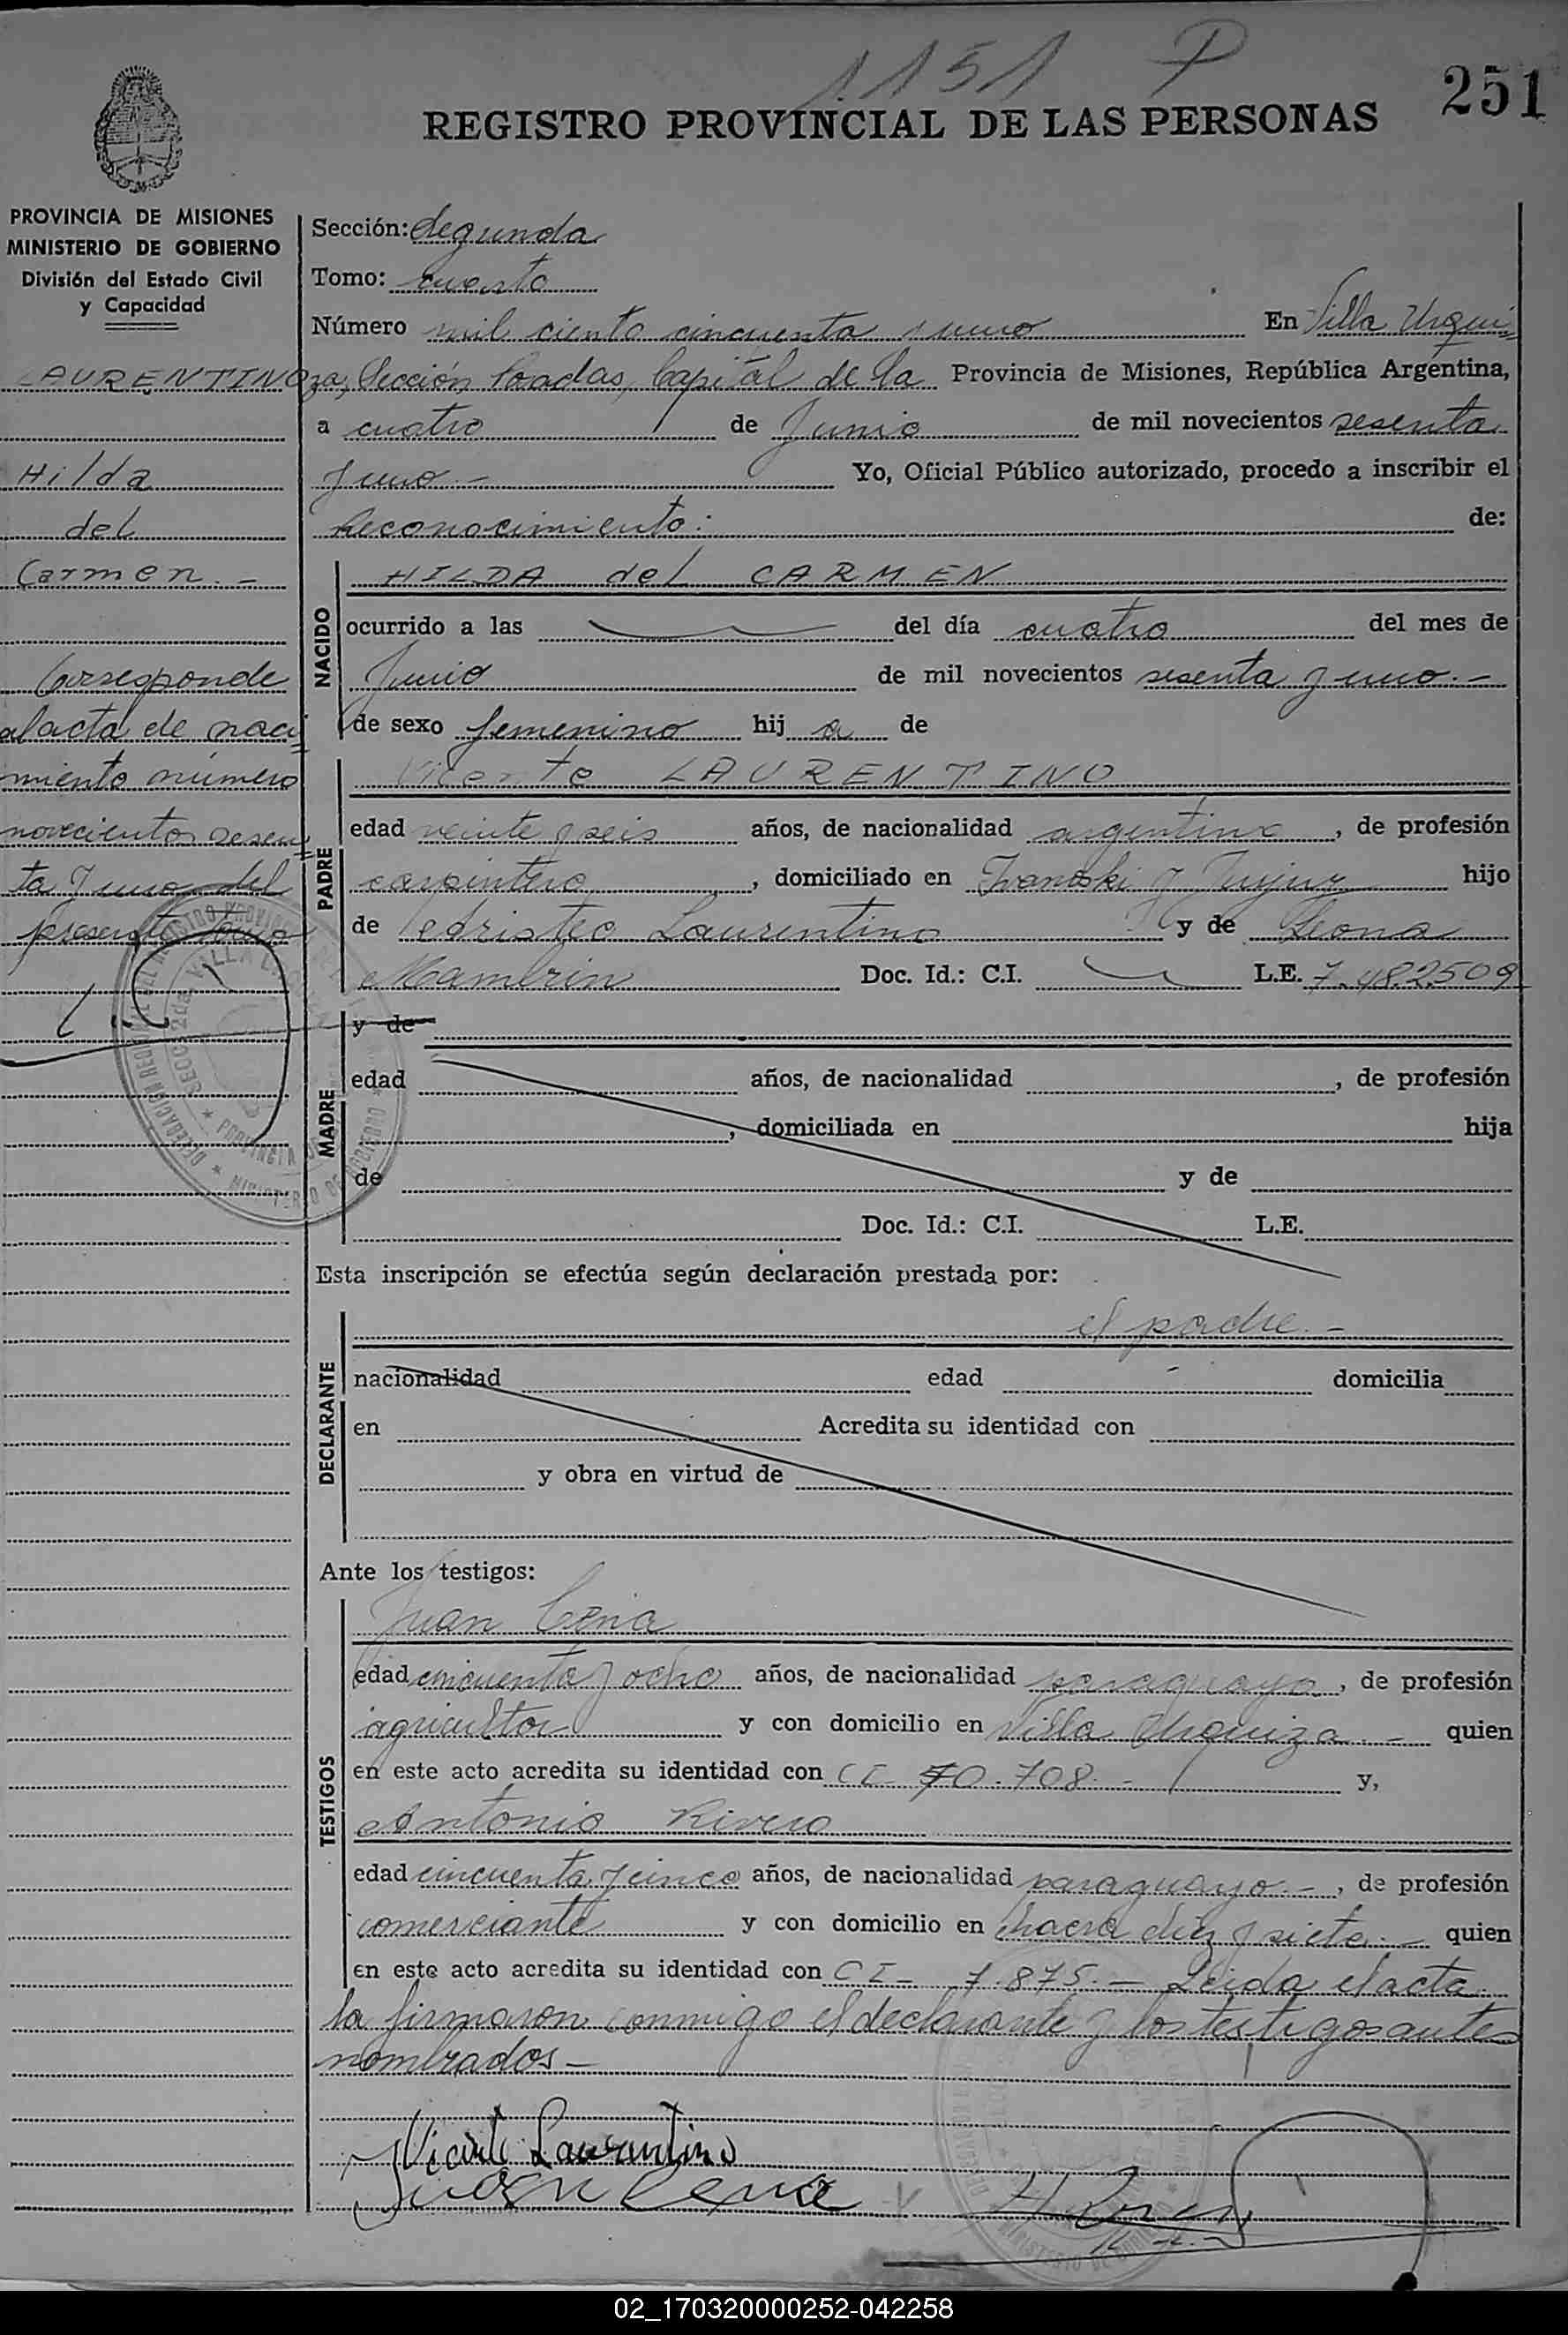 1151 P
251
REGISTRO PROVINCIAL DE LAS PERSONAS
PROVINCIA DE MISIONES
MINISTERIO DE GOBIERNO
División del Estado Civil
y Capacidad
LAURENTINO
Hilda
del
Carmen. -
Corresponde
al acta de naci=
miento número
novecientos sesen=
ta y uno del
presente tomo
Sección: Segunda
Tomo: cuarto
Número mil ciento cincuenta y uno En Villa Urqui=
za, Sección Posadas, Capital de la Provincia de Misiones, República Argentina,
a cuatro de Junio de mil novecientos sesenta
y uno - Yo, Oficial Público autorizado, procedo a inscribir el
Reconocimiento: de:
NACIDO
HILDA del CARMEN
ocurrido a las del día cuatro del mes de
Junio de mil novecientos sesenta y uno. -
de sexo femenino hij a de
PADRE
Vicente LAURENTINO
edad veinte y seis años, de nacionalidad argentino, de profesión
carpintero, domiciliado en y Jujuy hijo
de Laurentino y de Leona
Doc. Id.: C.I. L.E. 7.482509
MADRE
y de
edad años, de nacionalidad , de profesión
, domiciliada en hija
de y de
Doc. Id.: C.I. L.E.
Esta inscripción se efectúa según declaración prestada por:
DECLARANTE
el padre. -
nacionalidad edad domicilia
en Acredita su identidad con
y obra en virtud de
Ante los testigos:
TESTIGOS
Juan Cena
edad cincuenta y ocho años, de nacionalidad paraguayo, de profesión
agricultor y con domicilio en Villa Urquiza. - quien
en este acto acredita su identidad con CI 70.708. - y,
Antonio Rivero
edad cincuenta y cinco años, de nacionalidad paraguayo. -, de profesión
comerciante y con domicilio en chacra diez y siete. - quien
en este acto acredita su identidad con CI - 7.875. - Leida el acta
la firmaron conmigo el declarante y los testigos antes
nombrados -
Vicente Laurentino
Juan Cena
02_170320000252-042258